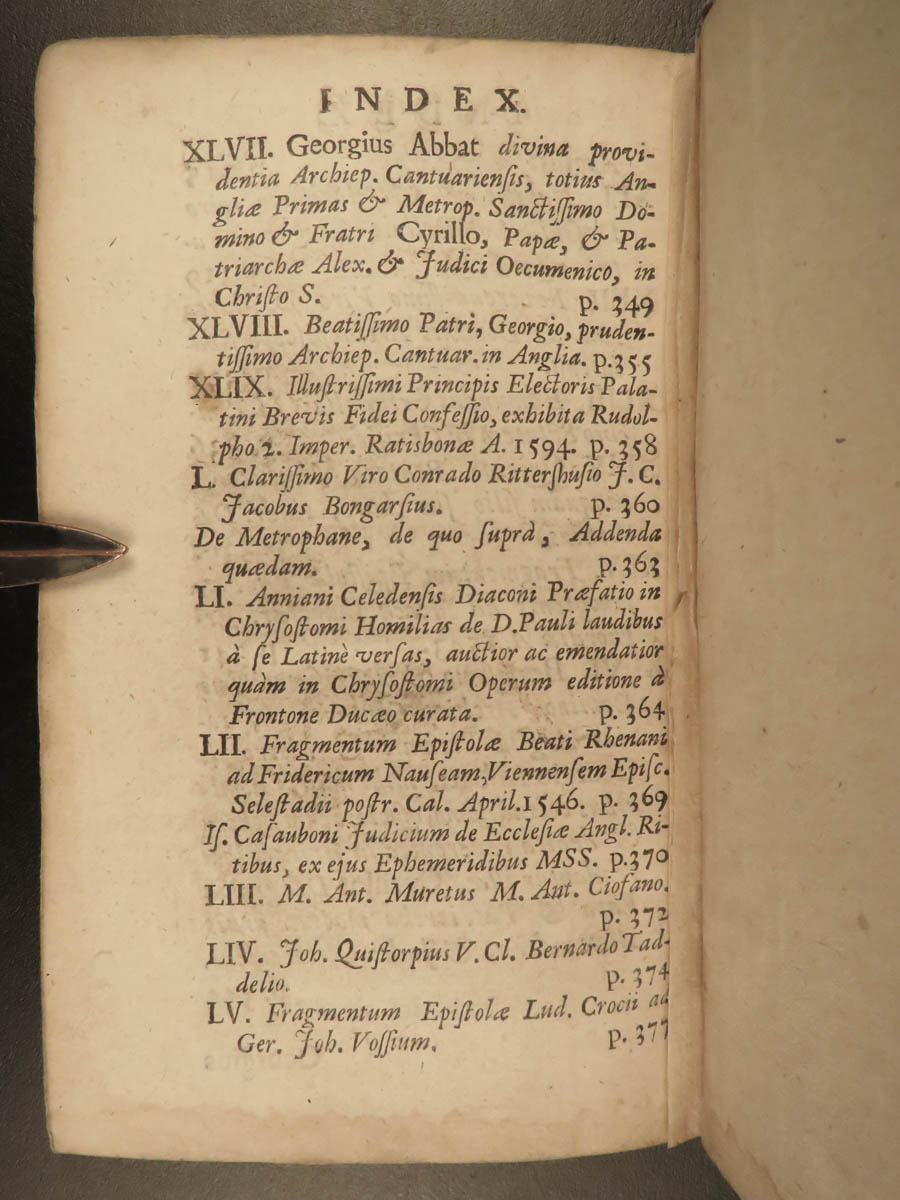 INDEX.
XLVII. Georgius Abbat divina provi-
dentia Archiep. Cantuarienſis, totius An-
gliæ Primas & Metrop. Sanctiſſimo Do-
mino & Fratri Cyrillo, Papæ, & Pa-
triarchæ Alex. & Judici Oecumenico, in
Chriſto S. p. 349
XLVIII. Beatiſſimo Patri, Georgio, pruden-
tiſſimo Archiep. Cantuar. in Anglia. p. 355
XLIX. Illuſtriſſimi Principis Electoris Pala-
tini Brevis Fidei Confeſſio, exhibita Rudol-
pho 2. Imper. Ratisbonæ A. 1594. p. 358
L. Clariſſimo Viro Conrado Ritterſhuſio J. C.
Jacobus Bongarſius. p. 360
De Metrophane, de quo ſuprà, Addenda
quædam. p. 363
LI. Anniani Celedenſis Diaconi Præfatio in
Chryſoſtomi Homilias de D. Pauli laudibus
à ſe Latinè verſas, auctior ac emendatior
quàm in Chryſoſtomi Operum editione à
Frontone Ducæo curata. p. 364
LII. Fragmentum Epiſtolæ Beati Rhenani
ad Fridericum Nauſeam, Viennenſem Epiſc.
Seleſtadii poſtr. Cal. April. 1546. p. 369
Iſ. Caſauboni Judicium de Eccleſiæ Angl. Ri-
tibus, ex ejus Ephemeridibus MSS. p. 370
LIII. M. Ant. Muretus M. Ant. Ciofano.
p. 372
LIV. Joh. Quiſtorpius V. Cl. Bernardo Tad-
delio. p. 374
LV. Fragmentum Epiſtolæ Lud. Crocii ad
Ger. Joh. Voſſium. p. 377